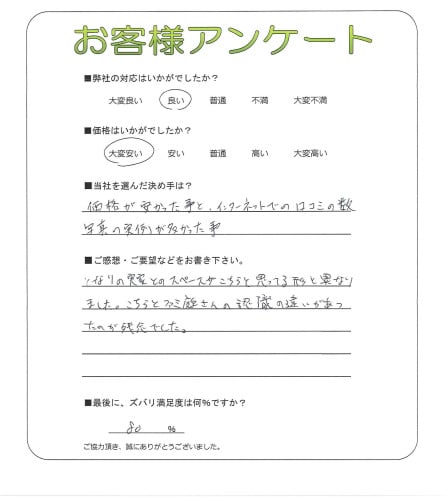 お客様アンケート
■弊社の対応はいかがでしたか?
大変良い 良い 普通 不満 大変不満
■価格はいかがでしたか?
大変安い 安い 普通 高い 大変高い
■当社を選んだ決め手は?
価格が安かった事と、インターネットでの口コミの数
写真の実例が多かった事
■ご感想・ご要望などをお書き下さい。
となりの家とのスペースがこちらと思ってる形と異なり
ました。こちらと庭さんの認識の違いがあっ
たのが残念でした。
■最後に、ズバリ満足度は何%ですか?
80 %
ご協力頂き、誠にありがとうございました。